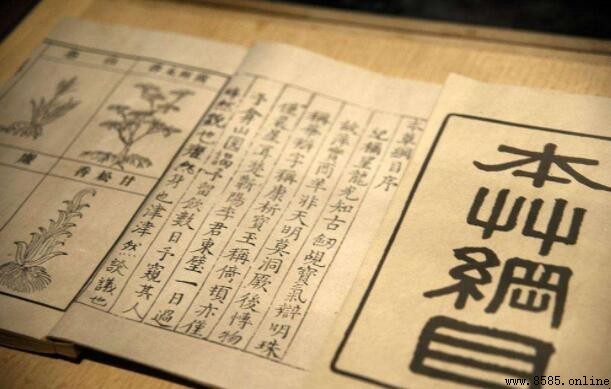 本艸綱目
本草綱目序
紀稱望龍光知古劒覘寶氣辯明珠
故萍實商羊非天明莫洞厥後博物
稱華辯字稱康析寶玉稱倚頓亦僅
僅晨星耳楚蘄陽李君東璧一日過
予弇山園謁予留飲數日予窺其人
睟然貌也癯然身也津津然談議也
甘松香
www.8585.online